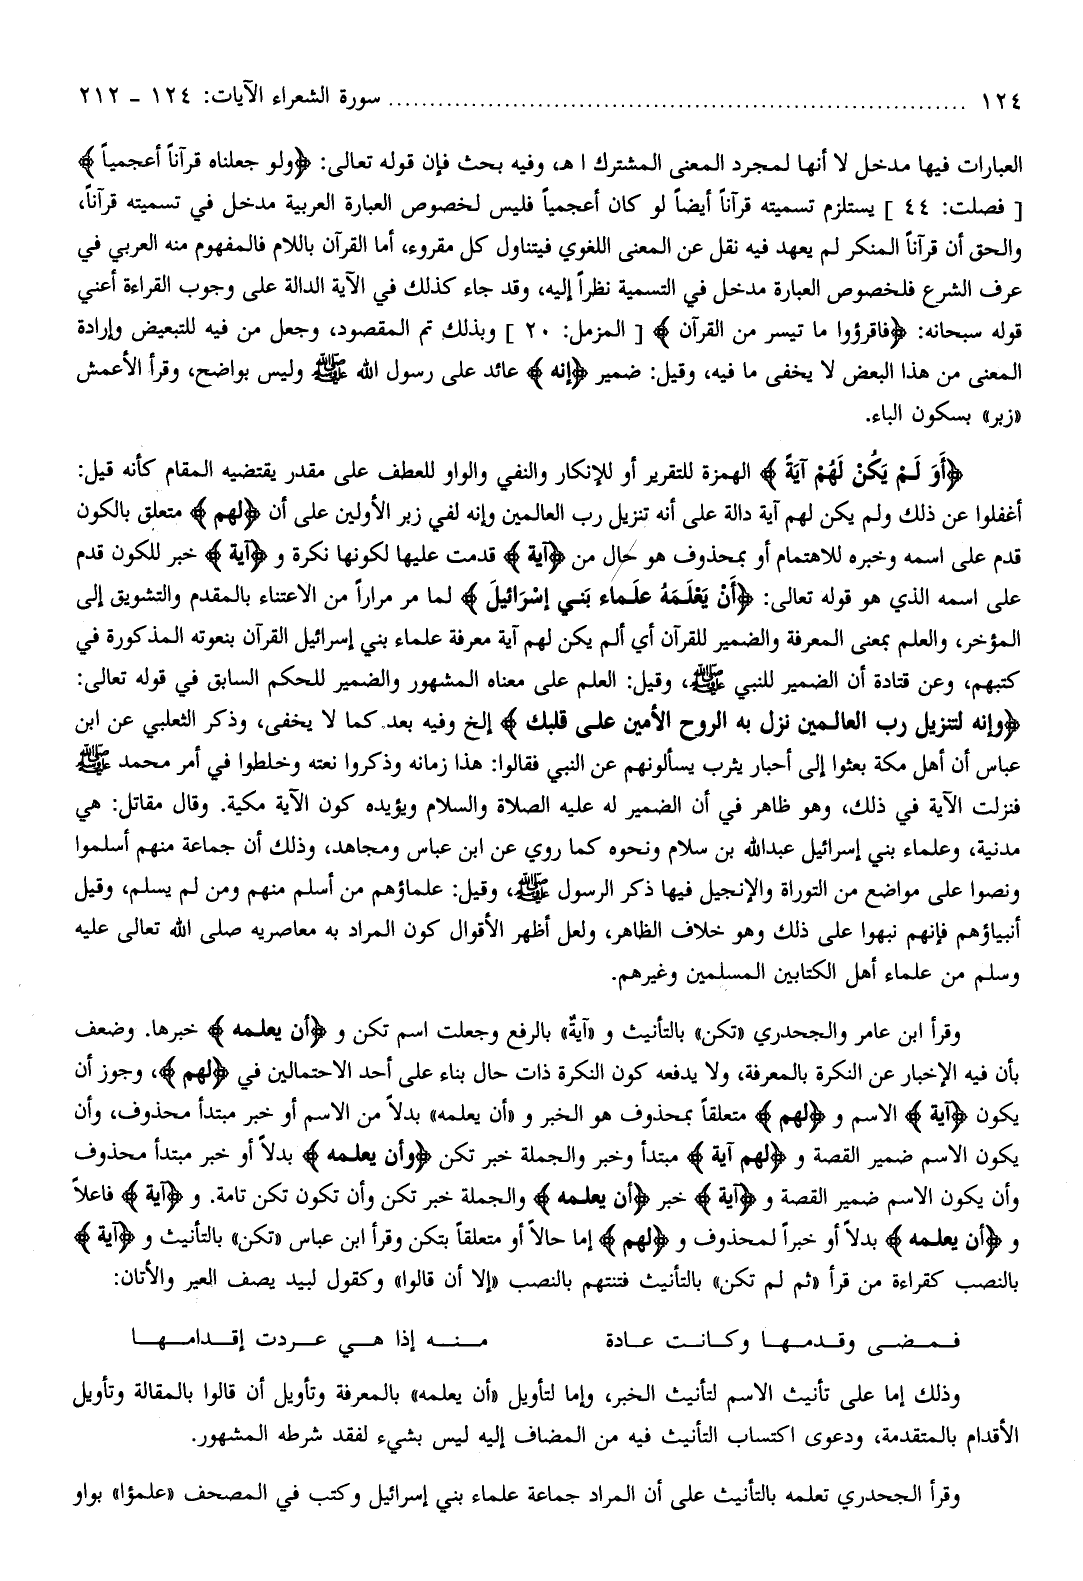 ١٢٤ ........................................ سورة الشعراء الآيات: ١٢٤ - ٢١٢
العبارات فيها مدخل لا أنها لمجرد المعنى المشترك ا هـ، وفيه بحث فإن قوله تعالى: ﴿ولو جعلناه قرآناً أعجمياً﴾
[ فصلت: ٤٤ ] يستلزم تسميته قرآناً أيضاً لو كان أعجمياً فليس لخصوص العبارة العربية مدخل في تسميته قرآناً،
والحق أن قرآناً المنكر لم يعهد فيه نقل عن المعنى اللغوي فيتناول كل مقروء، أما القرآن باللام فالمفهوم منه العربي في
عرف الشرع فلخصوص العبارة مدخل في التسمية نظراً إليه، وقد جاء كذلك في الآية الدالة على وجوب القراءة أعني
قوله سبحانه: ﴿فاقرؤوا ما تيسر من القرآن﴾ [ المزمل: ٢٠ ] وبذلك تم المقصود، وجعل من فيه للتبعيض وإرادة
المعنى من هذا البعض لا يخفى ما فيه، وقيل: ضمير ﴿إنه﴾ عائد على رسول الله ﷺ وليس بواضح، وقرأ الأعمش
«زبر» بسكون الباء.
﴿أَوَ لَمْ يَكُنْ لَهُمْ آيَةً﴾ الهمزة للتقرير أو للإنكار والنفي والواو للعطف على مقدر يقتضيه المقام كأنه قيل:
أغفلوا عن ذلك ولم يكن لهم آية دالة على أنه تنزيل رب العالمين وإنه لفي زبر الأولين على أن ﴿لهم﴾ متعلق بالكون
قدم على اسمه وخبره للاهتمام أو بمحذوف هو حال من ﴿آية﴾ قدمت عليها لكونها نكرة و ﴿آية﴾ خبر للكون قدم
على اسمه الذي هو قوله تعالى: ﴿أَنْ يَعْلَمَهُ علَماء بَني إسْرَائيلَ﴾ لما مر مراراً من الاعتناء بالمقدم والتشويق إلى
المؤخر، والعلم بمعنى المعرفة والضمير للقرآن أي ألم يكن لهم آية معرفة علماء بني إسرائيل القرآن بنعوته المذكورة في
كتبهم، وعن قتادة أن الضمير للنبي ﷺ، وقيل: العلم على معناه المشهور والضمير للحكم السابق في قوله تعالى:
﴿وإنه لتنزيل رب العالمين نزل به الروح الأمين على قلبك﴾ إلخ وفيه بعد كما لا يخفى، وذكر الثعلبي عن ابن
عباس أن أهل مكة بعثوا إلى أحبار يثرب يسألونهم عن النبي فقالوا: هذا زمانه وذكروا نعته وخلطوا في أمر محمد ﷺ
فنزلت الآية في ذلك، وهو ظاهر في أن الضمير له عليه الصلاة والسلام ويؤيده كون الآية مكية. وقال مقاتل: هي
مدنية، وعلماء بني إسرائيل عبدالله بن سلام ونحوه كما روي عن ابن عباس ومجاهد، وذلك أن جماعة منهم أسلموا
ونصوا على مواضع من التوراة والإنجيل فيها ذكر الرسول ﷺ، وقيل: علماؤهم من أسلم منهم ومن لم يسلم، وقيل
أنبياؤهم فإنهم نبهوا على ذلك وهو خلاف الظاهر، ولعل أظهر الأقوال كون المراد به معاصريه صلى الله تعالى عليه
وسلم من علماء أهل الكتابين المسلمين وغيرهم.
وقرأ ابن عامر والجحدري «تكن» بالتأنيث و «آيةٌ» بالرفع وجعلت اسم تكن و ﴿أن يعلمه﴾ خبرها. وضعف
بأن فيه الإخبار عن النكرة بالمعرفة، ولا يدفعه كون النكرة ذات حال بناء على أحد الاحتمالين في ﴿لهم﴾، وجوز أن
يكون ﴿آية﴾ الاسم و ﴿لهم﴾ متعلقاً بمحذوف هو الخبر و «أن يعلمه» بدلاً من الاسم أو خبر مبتدأ محذوف، وأن
يكون الاسم ضمير القصة و ﴿لهم آية﴾ مبتدأ وخبر والجملة خبر تكن ﴿وأن يعلمه﴾ بدلاً أو خبر مبتدأ محذوف
وأن يكون الاسم ضمير القصة و ﴿آية﴾ خبر ﴿أن يعلمه﴾ والجملة خبر تكن وأن تكون تكن تامة. و ﴿آية﴾ فاعلاً
و ﴿أن يعلمه﴾ بدلاً أو خبراً لمحذوف و ﴿لهم﴾ إما حالاً أو متعلقاً بتكن وقرأ ابن عباس «تكن» بالتأنيث و ﴿آية﴾
بالنصب كقراءة من قرأ «ثم لم تكن» بالتأنيث فتنتهم بالنصب «إلا أن قالوا» وكقول لبيد يصف العير والأتان:
فـمـضـى وقـدمـهـا وكـانـت عـادة منـه إذا هـي عـردت إقـدامـهـا
وذلك إما على تأنيث الاسم لتأنيث الخبر، وإما لتأويل «أن يعلمه» بالمعرفة وتأويل أن قالوا بالمقالة وتأويل
الأقدام بالمتقدمة، ودعوى اكتساب التأنيث فيه من المضاف إليه ليس بشيء لفقد شرطه المشهور.
وقرأ الجحدري تعلمه بالتأنيث على أن المراد جماعة علماء بني إسرائيل وكتب في المصحف «علمؤا» بواو